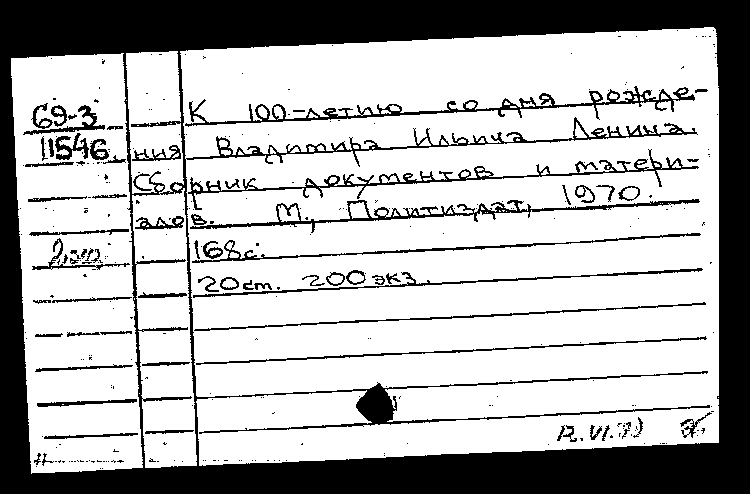 69-3 К 100-летию со дня рожде-
11546. ния Владимира Ильича Ленина.
Сборник документов и матери-
алов. М, Политиздат, 1970.
168с.
20 см. 200 экз.